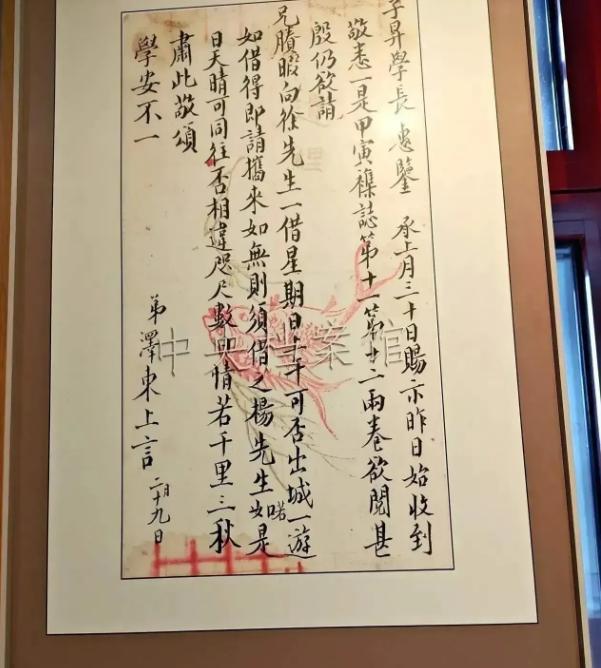 子昇學長惠鑒 承上月三十日賜示昨日始收到
敬悉一是甲寅襍誌第十一第十二兩卷欲閱甚
殷仍欲請
兄賸暇向徐先生一借星期日上午可否出城一遊
如借得即請攜來如無則須借之楊先生喏如是
日天晴可同往否相違咫尺數日情若千里三秋
肅此敬頌
學安不一
弟澤東上言 二月十九日